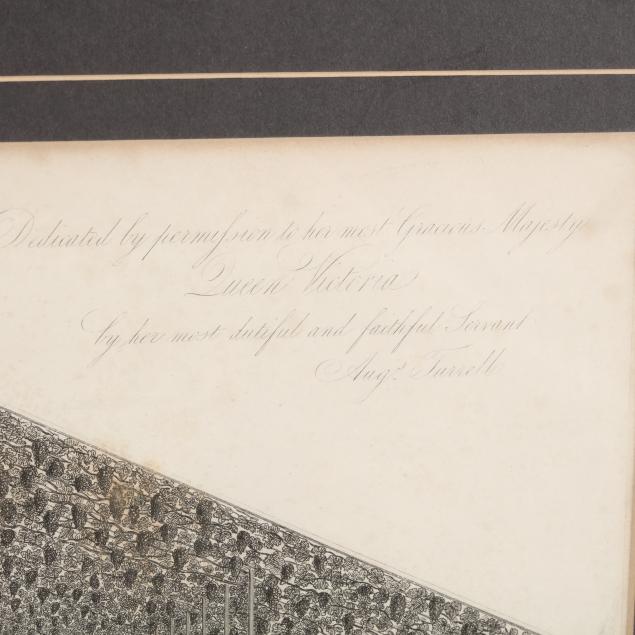 Dedicated by permiſsion to her most Gracious Majesty
Queen Victoria
by her most dutiful and faithful Servant
Augs. Turrell